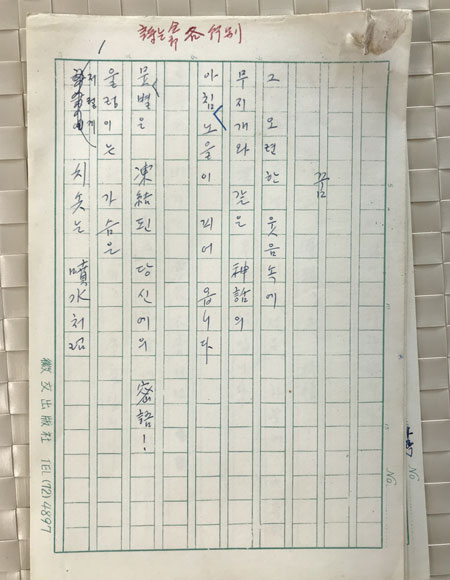 詩는 各 行別
꿈
그 오련한 웃음속에
무지개와 같은 神話의
아침노을이 피어 옵니다
凍結된 당신에의 密語!
울렁이는 가슴은
저렇게 치솟는 噴水처럼
徽文出版社 TEL (72) 4897
No.
No.